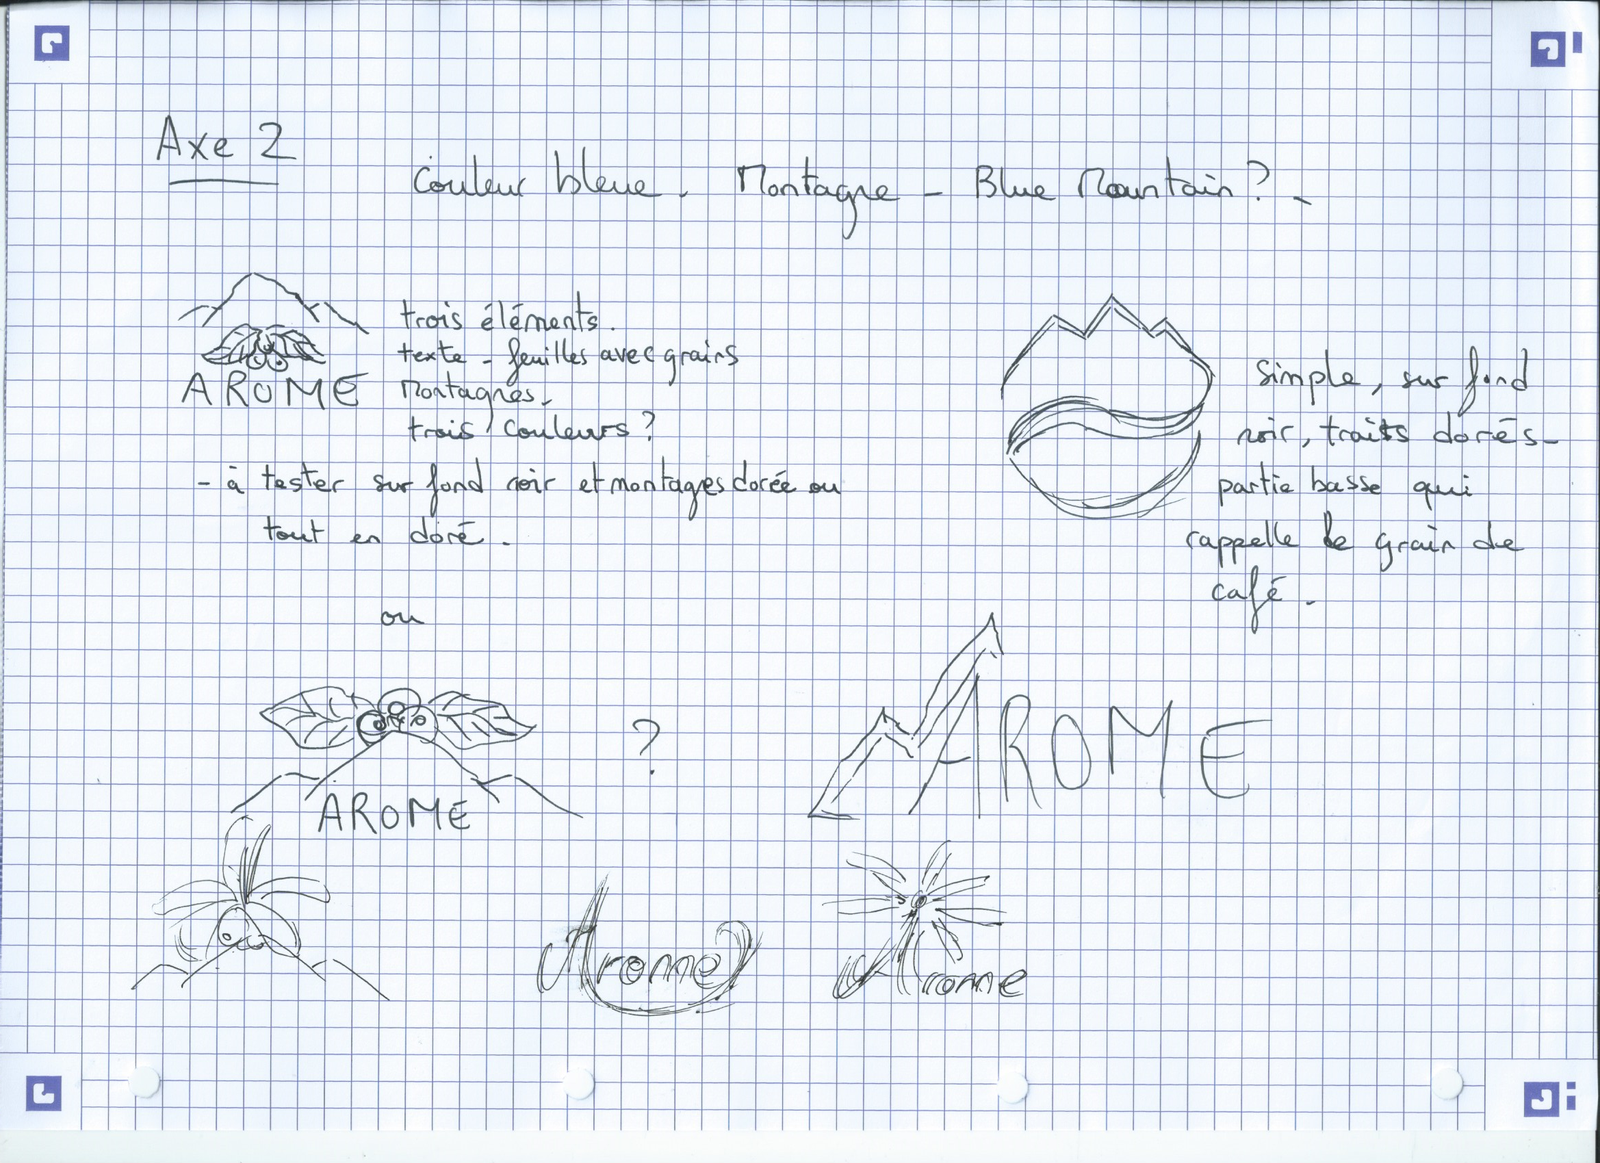 Axe 2
Couleur bleue. Montagne - Blue Mountain ? -
trois éléments.
texte - feuilles avec grains
AROME
Montagnes -
trois couleurs ?
- à tester sur fond noir et montages dorée ou
tout en doré.
simple, sur fond
noir, traits dorés -
partie basse qui
rappelle le grain de
café.
ou
?
AROME
AROME
Arome
Arome